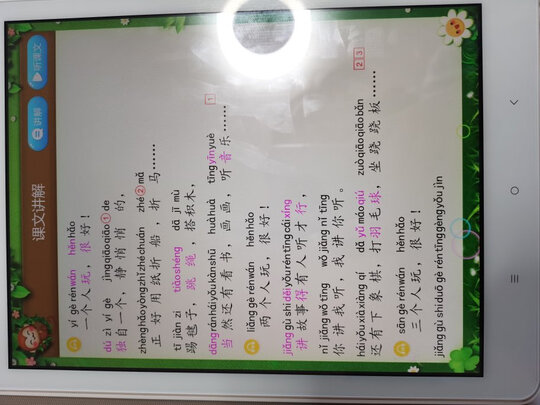 课文讲解
讲解
听课文
yí gè rén wán hěn hǎo
一个人玩，很好！
dú zì yí gè jìng qiāo qiāo ① de
独自一个，静悄悄的，
zhèng hǎo yòng zhǐ zhé chuán zhé ② mǎ
正好用纸折船，折马……
tī jiàn zi tiào shéng dā jī mù
踢毽子，跳绳，搭积木，
dāng rán hái yǒu kàn shū huà huà tīng yīn yuè
当然还有看书，画画，听音乐…… 1
liǎng gè rén wán hěn hǎo
两个人玩，很好！
jiǎng gù shi děi yǒu rén tīng cái xíng
讲故事得有人听才行，
nǐ jiǎng wǒ tīng wǒ jiǎng nǐ tīng
你讲我听，我讲你听。
hái yǒu xià xiàng qí dǎ yǔ máo qiú zuò qiāo qiāo bǎn
还有下象棋，打羽毛球，坐跷跷板…… 2 3
sān gè rén wán hěn hǎo
三个人玩，很好！
jiǎng gù shi duō gè rén tīng gèng yǒu jìn